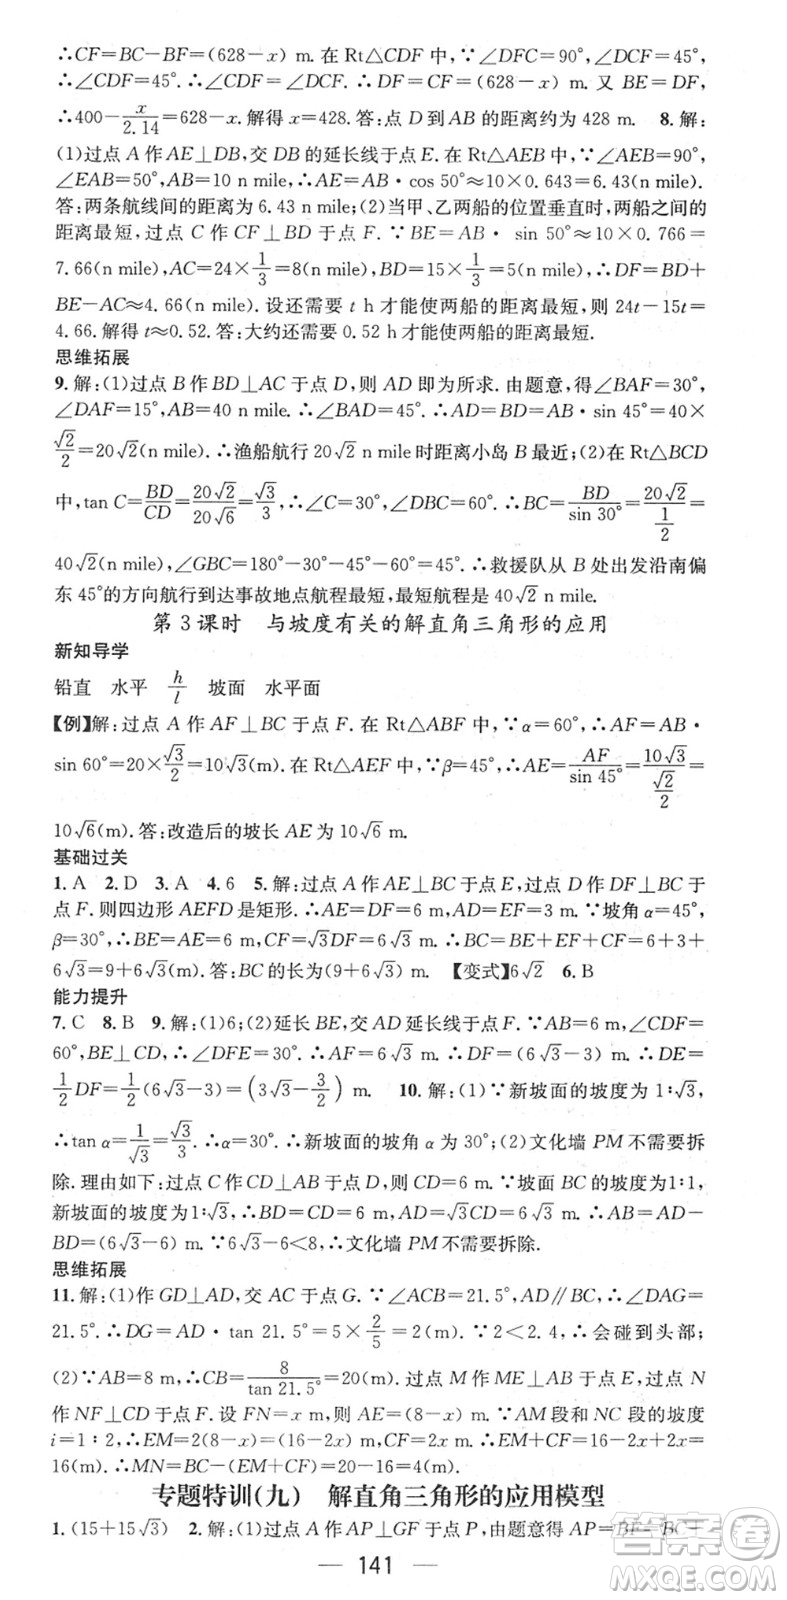 ∴CF=BC−BF=(628−x) m. 在 Rt△CDF 中,∵∠DFC=90°,∠DCF=45°,
∴∠CDF=45°. ∴∠CDF=∠DCF. ∴DF=CF=(628−x) m. 又 BE=DF,
∴400−x/2.14=628−x. 解得 x=428. 答:点 D 到 AB 的距离约为 428 m. 8. 解:
(1)过点 A 作 AE⊥DB,交 DB 的延长线于点 E. 在 Rt△AEB 中,∵∠AEB=90°,
∠EAB=50°,AB=10 n mile,∴AE=AB·cos 50°≈10×0.643=6.43(n mile).
答:两条航线间的距离为 6.43 n mile;(2)当甲、乙两船的位置垂直时,两船之间的
距离最短,过点 C 作 CF⊥BD 于点 F. ∵BE=AB·sin 50°≈10×0.766=
7.66(n mile),AC=24×1/3=8(n mile),BD=15×1/3=5(n mile),∴DF=BD+
BE−AC≈4.66(n mile). 设还需要 t h 才能使两船的距离最短,则 24t−15t=
4.66. 解得 t≈0.52. 答:大约还需要 0.52 h 才能使两船的距离最短.
思维拓展
9. 解:(1)过点 B 作 BD⊥AC 于点 D,则 AD 即为所求. 由题意,得∠BAF=30°,
∠DAF=15°,AB=40 n mile. ∴∠BAD=45°. ∴AD=BD=AB·sin 45°=40×
√2/2=20√2(n mile). ∴渔船航行 20√2 n mile 时距离小岛 B 最近;(2)在 Rt△BCD
中,tan C=BD/CD=20√2/20√6=√3/3,∴∠C=30°,∠DBC=60°. ∴BC=BD/sin 30°=20√2/(1/2)=
40√2(n mile),∠GBC=180°−30°−45°−60°=45°. ∴救援队从 B 处出发沿南偏
东 45°的方向航行到达事故地点航程最短,最短航程是 40√2 n mile.
第 3 课时 与坡度有关的解直角三角形的应用
新知导学
铅直 水平 h/l 坡面 水平面
【例】解:过点 A 作 AF⊥BC 于点 F. 在 Rt△ABF 中,∵α=60°,∴AF=AB·
sin 60°=20×√3/2=10√3(m). 在 Rt△AEF 中,∵β=45°,∴AE=AF/sin 45°=10√3/(√2/2)=
10√6(m). 答:改造后的坡长 AE 为 10√6 m.
基础过关
1. A 2. D 3. A 4. 6 5. 解:过点 A 作 AE⊥BC 于点 E,过点 D 作 DF⊥BC 于
点 F. 则四边形 AEFD 是矩形. ∴AE=DF=6 m,AD=EF=3 m. ∵坡角 α=45°,
β=30°,∴BE=AE=6 m,CF=√3DF=6√3 m. ∴BC=BE+EF+CF=6+3+
6√3=9+6√3(m). 答:BC 的长为(9+6√3)m. 【变式】6√2 6. B
能力提升
7. C 8. B 9. 解:(1)6;(2)延长 BE,交 AD 延长线于点 F. ∵AB=6 m,∠DCF=
60°,BE⊥CD,∴∠DFE=30°. ∴AF=6√3 m. ∴DF=(6√3−3) m. ∴DE=
1/2DF=1/2(6√3−3)=(3√3−3/2) m. 10. 解:(1)∵新坡面的坡度为 1∶√3,
∴tan α=1/√3=√3/3. ∴α=30°. ∴新坡面的坡角 α 为 30°;(2)文化墙 PM 不需要拆
除. 理由如下:过点 C 作 CD⊥AB 于点 D,则 CD=6 m. ∵坡面 BC 的坡度为1∶1,
新坡面的坡度为 1∶√3,∴BD=CD=6 m,AD=√3CD=6√3 m. ∴AB=AD−
BD=(6√3−6) m. ∵6√3−6<8,∴文化墙 PM 不要拆除.
思维拓展
11. 解:(1)作 GD⊥AD,交 AC 于点 G. ∵∠ACB=21.5°,AD∥BC,∴∠DAG=
21.5°. ∴DG=AD·tan 21.5°=5×2/5=2(m). ∵2<2.4,∴会碰到头部;
(2)∵AB=8 m,∴CB=8/tan 21.5°=20(m). 过点 M 作 ME⊥AB 于点 E,过点 N
作 NF⊥CD 于点 F. 设 FN=x m,则 AE=(8−x) m. ∵AM 段和 NC 段的坡度
i=1∶2,∴EM=2(8−x)=(16−2x) m,CF=2x m. ∴EM+CF=16−2x+2x=
16(m). ∴MN=BC−(EM+CF)=20−16=4(m).
专题特训(九) 解直角三角形的应用模型
1. (15+15√3) 2. 解:(1)过点 A 作 AP⊥GF 于点 P,由题意得 AP=BF=BC+
141
答案圈
MXQE.COM